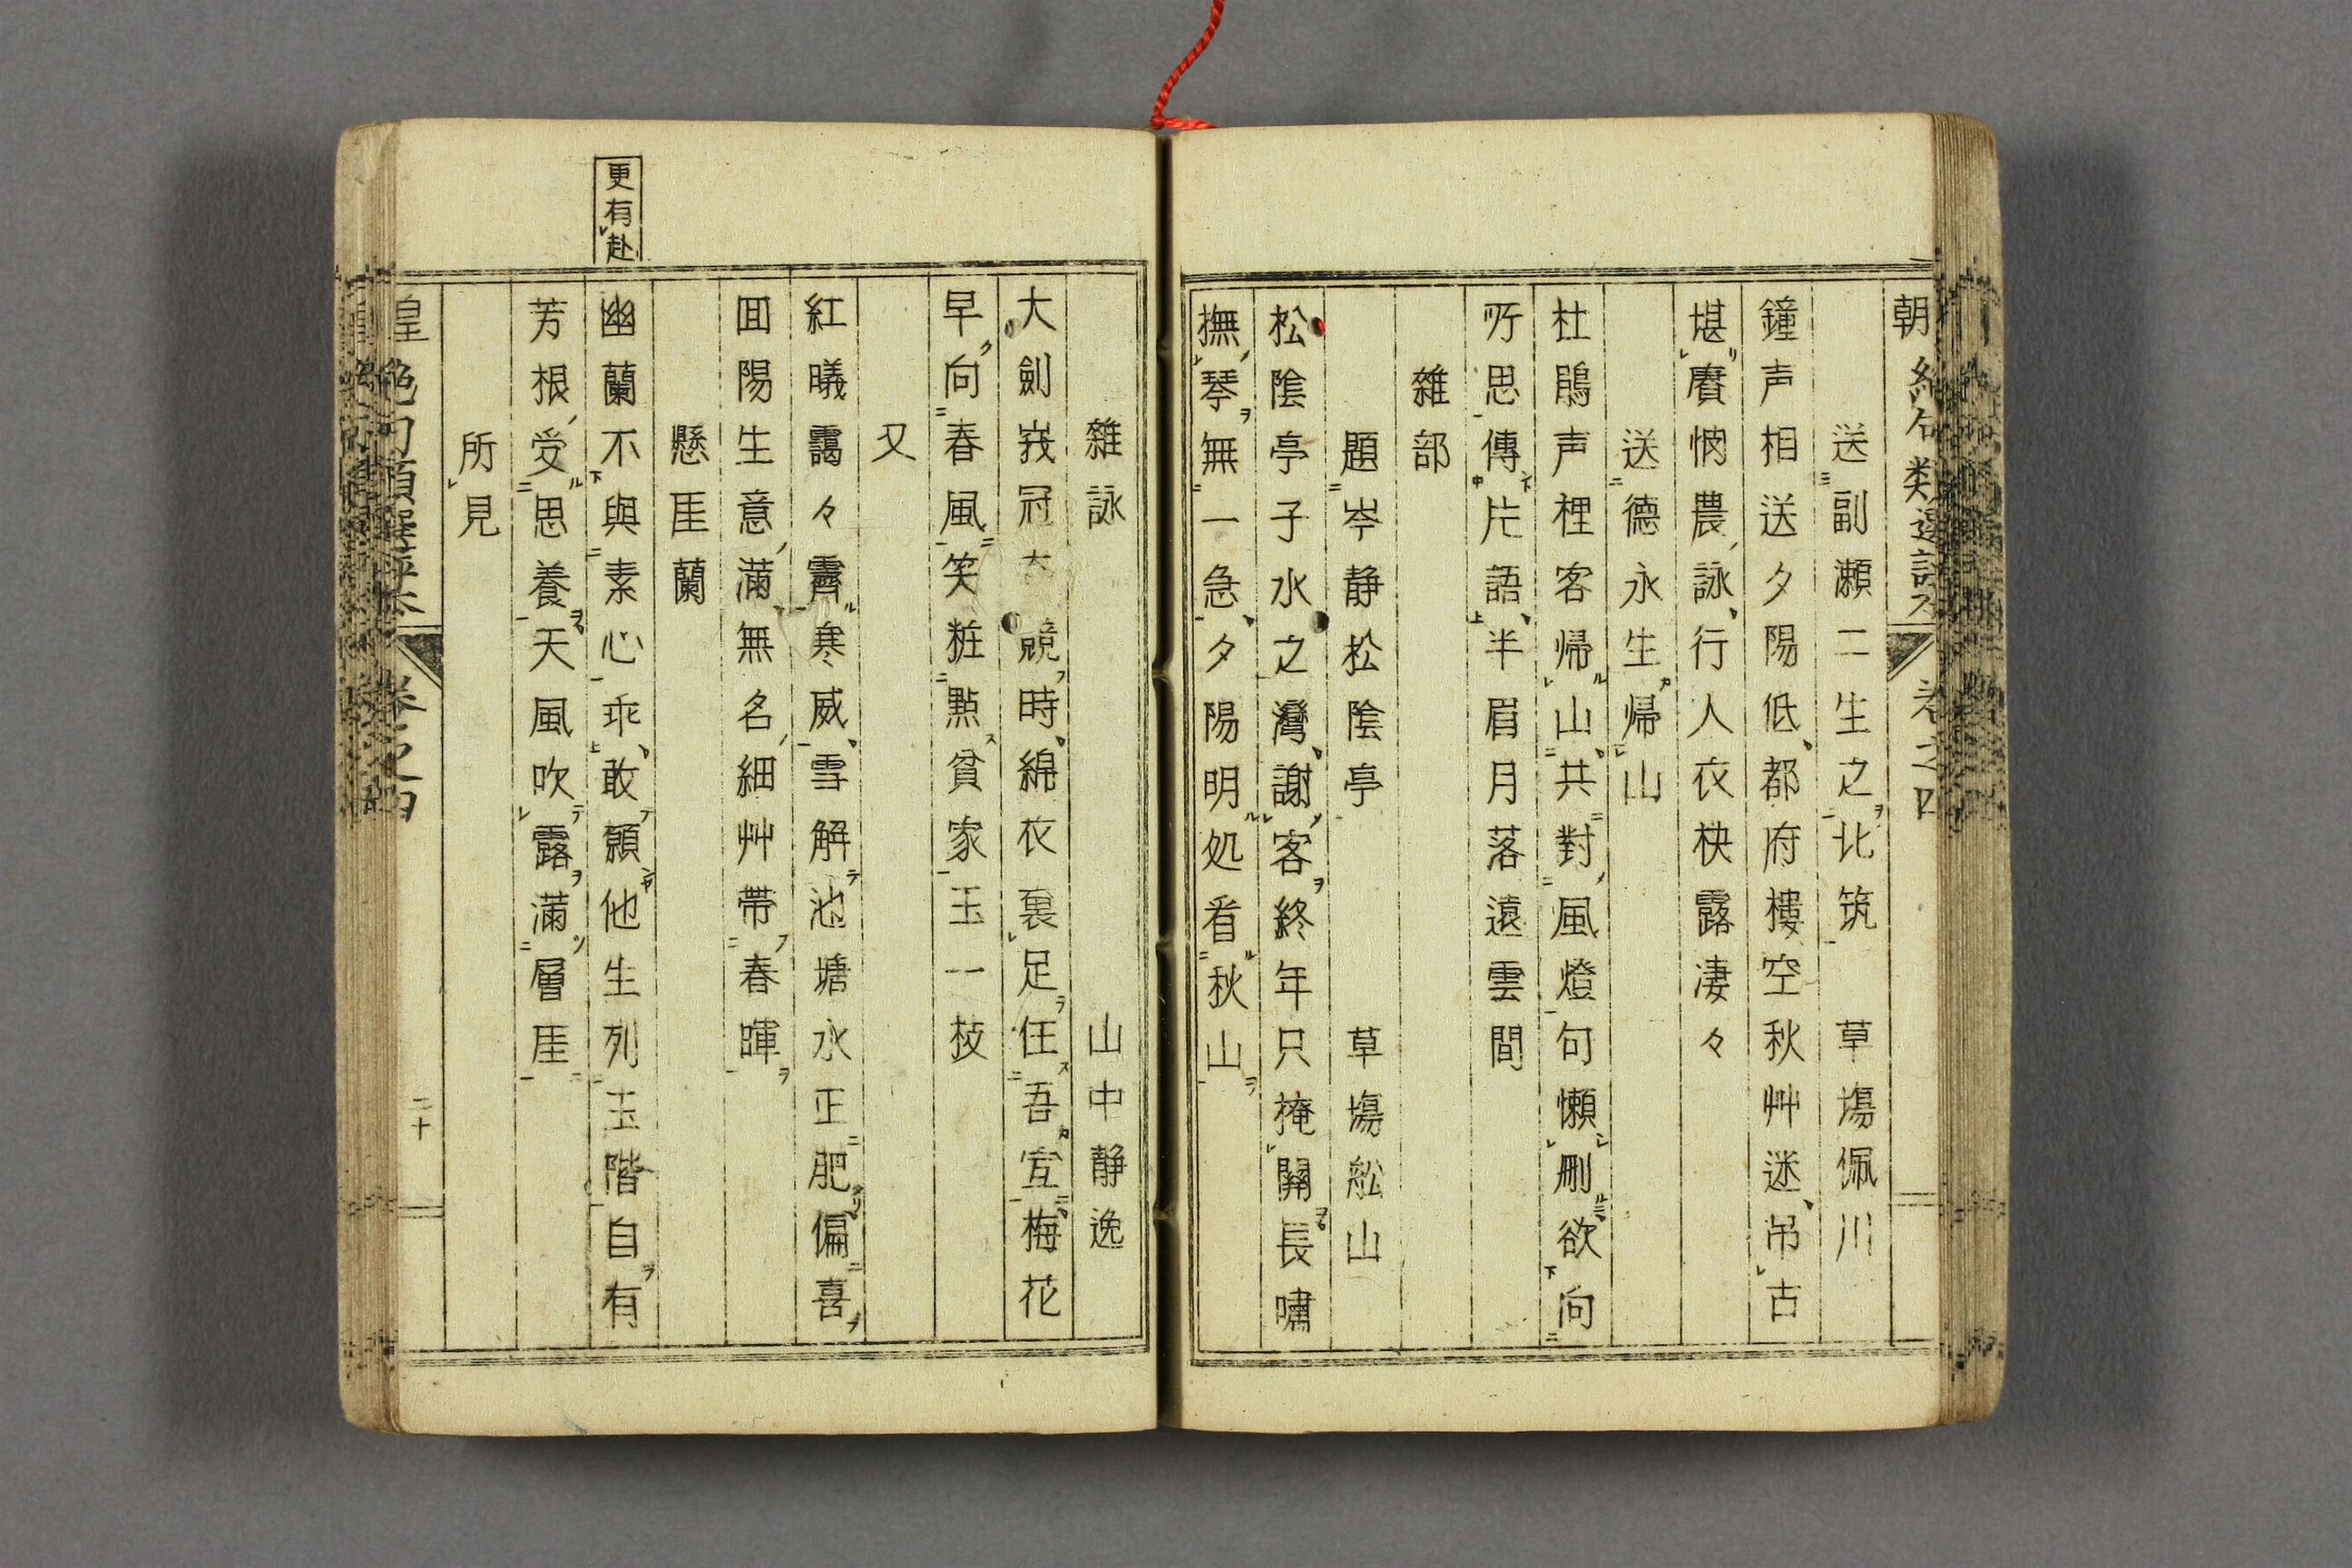 送副瀬二生之北筑 草場佩川
鐘声相送夕陽低都府樓空秋艸迷吊古
堪賡惘農詠行人衣袂露凄々
送德永生帰山
杜鵑声裡客帰山共對風燈句懶删欲向
所思傳片語半眉月落遠雲間
雜部
題岑静松陰亭 草場舩山
松陰亭子水之灣謝客終年只掩關長嘯
撫琴無一急夕陽明処看秋山
雜詠 山中静逸
大劍峩冠 競時綿衣裏足任吾宜梅花
早向春風笑粧點貧家玉一枝
又
紅曦靄々霽寒威雪解池塘水正肥偏喜
回陽生意滿無名細艸帶春暉
懸厓蘭
更有赴
幽蘭不與素心乖敢願他生列玉階自有
芳根受思養天風吹露滿層厓
所見
二十